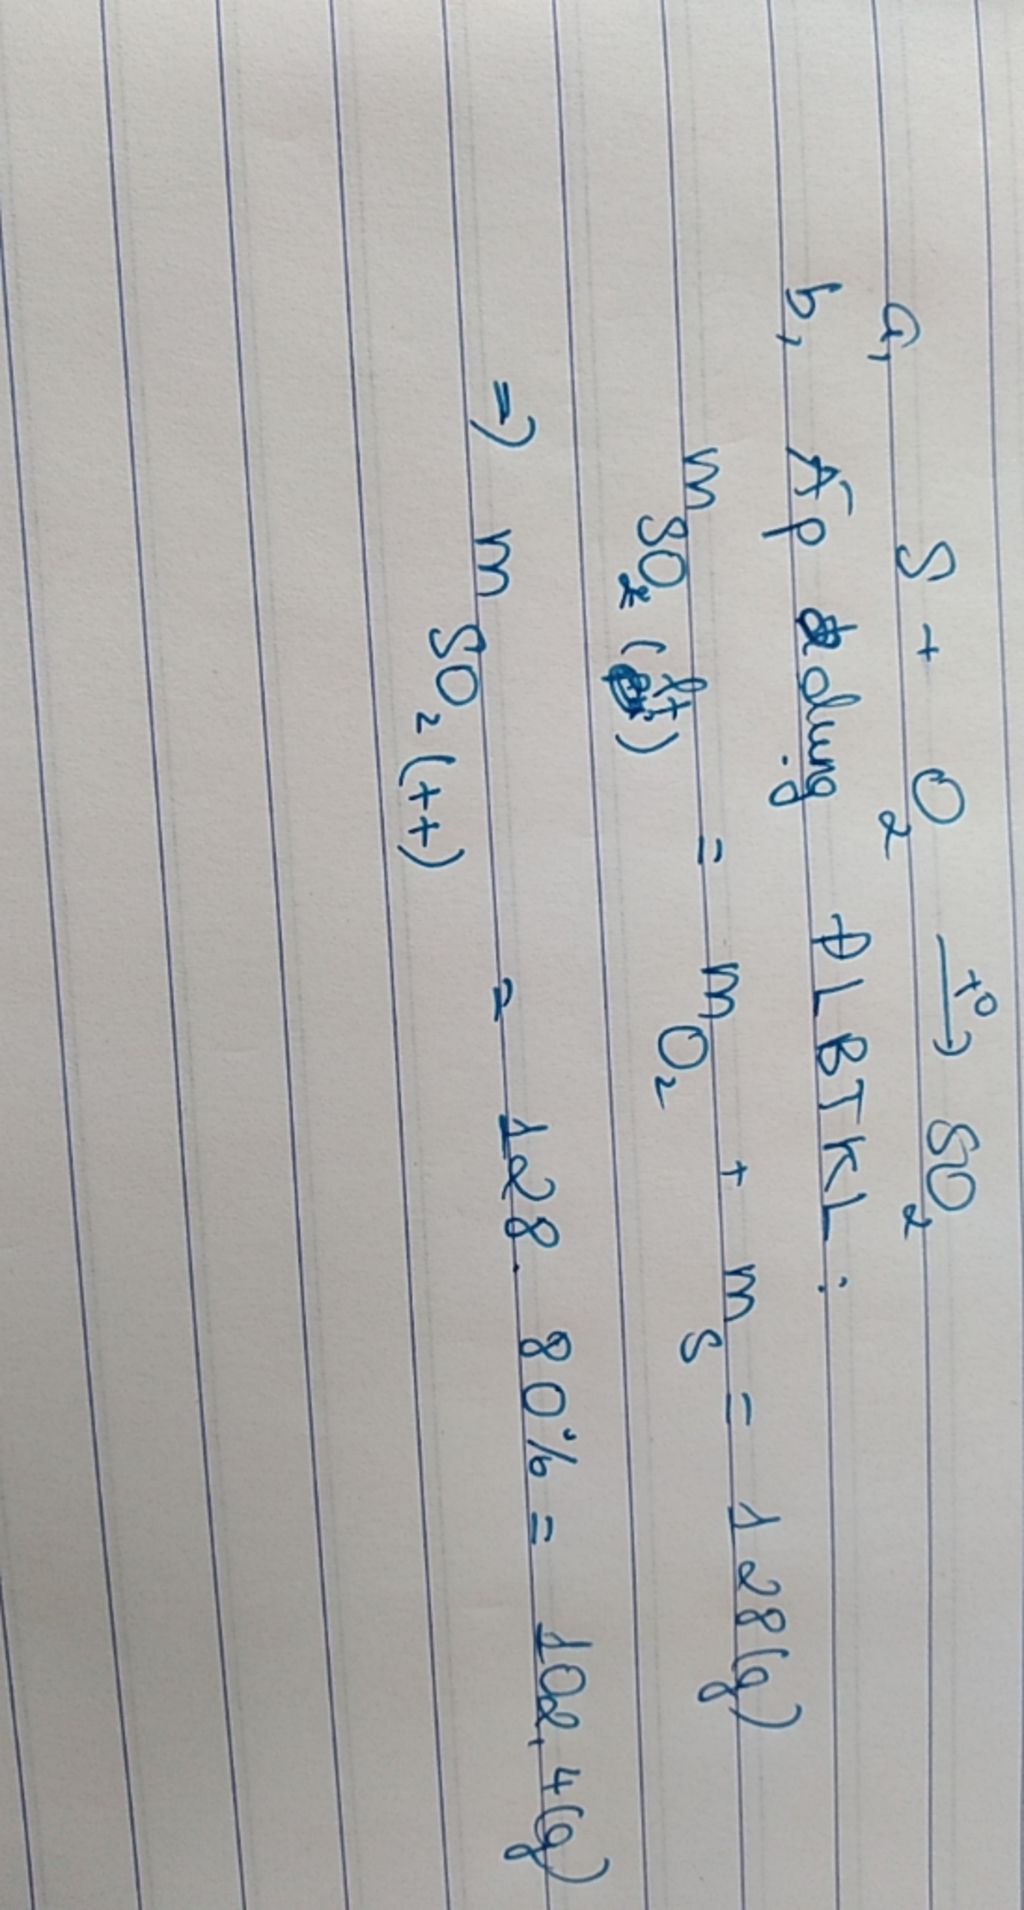 a, S + O₂ →(t°) SO₂
b, Áp dụng ĐLBTKL :
m SO₂ (lt) = m O₂ + m S = 128 (g)
=> m SO₂ (tt) = 128. 80% = 102,4 (g)